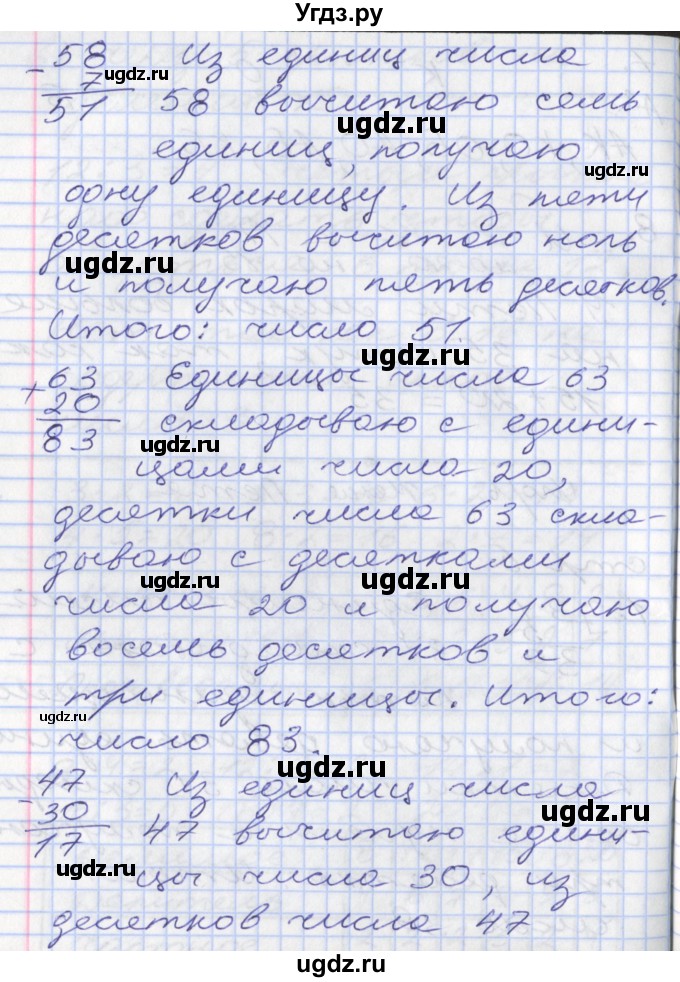 Угдз.ру
- 58 Из единиц числа
7 ugdz.ru
51 58 вычитаю семь
ugdz.ru
единиц, получаю
одну единицу. Из пяти
десятков вычитаю ноль
ugdz.ru ugdz.ru
и получаю пять десятков.
Итого: число 51.
ugdz.ru
+ 63 Единицы числа 63
20 складываю с едини-
83 ugdz.ru ugdz.ru
цами числа 20,
десятки числа 63 скла-
дываю с десятками
ugdz.ru ugdz.ru
числа 20 и получаю
восемь десятков и
три единицы. Итого:
ugdz.ru ugdz.ru
число 83.
- 47 Из единиц числа
30 ugdz.ru
17 47 вычитаю едини-
ugdz.ru ugdz.ru
цы числа 30, из
десятков числа 47
ugdz.ru